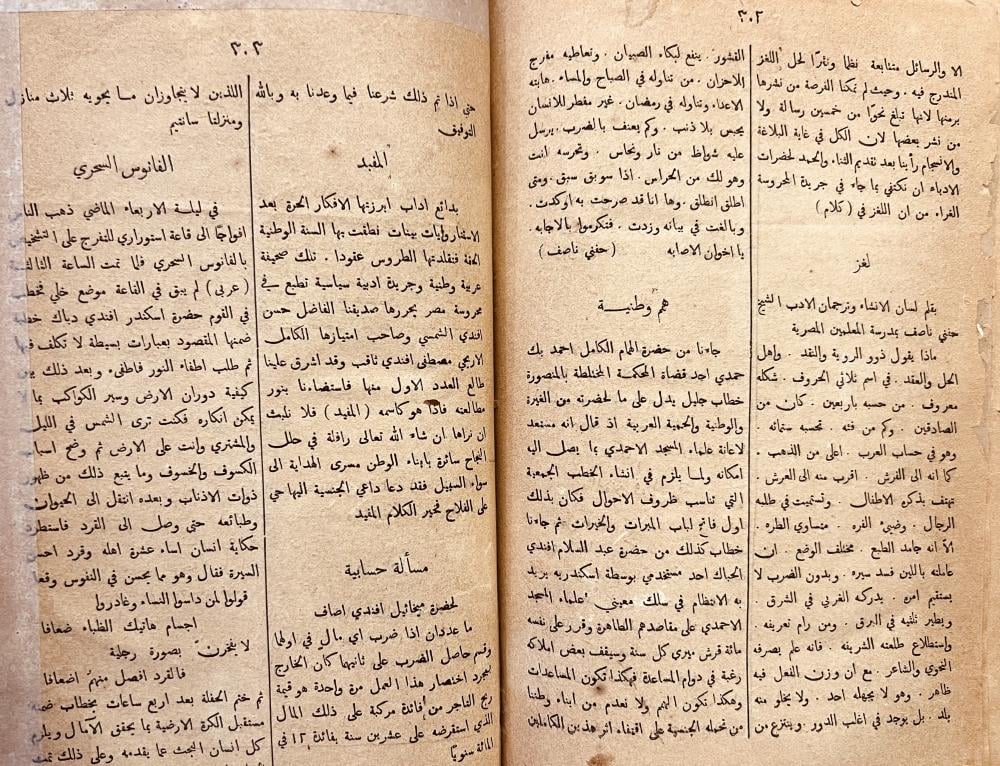 ٣٠٢
الا والرسائل متتابعة نظما ونثرًا لحل اللغز
المندرج فيه . وحيث لم يمكنا الفرصة من نشرها
برمتها لانها تبلغ نحوًا من خمسين رسالة ولا
من نشر بعضها لان الكل في غاية البلاغة
والانسجام رأينا بعد تقديم الثناء والحمد لحضرات
الادباء ان نكتفي بما جاء في جريدة المحروسة
الغراء من ان اللغز في ( كلام )
لغز
بقلم لسان الانشاء وترجمان الادب الشيخ
حفني ناصف بمدرسة المعلمين المصرية
ماذا يقول ذوو الروية والنقد . واهل
الحل والعقد . في اسم ثلاثي الحروف . شكله
معروف . من حسبه باربعين . كان من
الصادقين . وكم من فئه . تحسبه ستمائه .
وهو في حساب العرب . اعلى من الذهب .
كما انه الى الفرش . اقرب منه الى العرش .
تهتف بذكره الاطفال . وتستميت في طلبه
الرجال . وضيء الغره . متساوي الطره .
الّا انه جامد الطبع . مختلف الوضع . ان
عاملته باللين فسد سيره . وبدون الضرب لا
يستقيم امره . يدركه الغربي في الشرق .
ويطير ثلثيه في البرق . ومن رام تعريفه .
واستطلاع طلعته الشريفه . فانه علم يصرفه
النحوي والشاعر . مع ان وزن الفعل فيه
ظاهر . وهو لا يجهله احد . ولا يخلو منه
بلد . بل يوجد في اغلب الدور . وينتزع من
القشور . ينفع لبكاء الصبيان . وتعاطيه مفرج
للاحزان . من تناوله في الصباح والمساء . هابته
الاعداء . وتناوله في رمضان . غير مفطر للانسان
يحبس بلا ذنب . وكم يعنف بالضرب . يرسل
عليه شواظ من نار ونحاس . وتحرسه انت
وهو لك من الحراس . اذا سوبق سبق . ومتى
اطلق انطلق . وها انا قد صرحت به او كدت .
وبالغت في بيانه وزدت . فتكرموا بالاجابه .
يا اخوان الاصابه ( حفني ناصف )
همم وطنية
جاءنا من حضرة الهمام الكامل احمد بك
حمدي احد قضاة المحكمة المختلطة بالمنصورة
خطاب جليل يدل على ما لحضرته من الغيرة
والوطنية والحمية العربية اذ قال انه مستعد
لاعانة علماء المسجد الاحمدي بما يصل اليه
امكانه ولما يلزم في انشاء الخطب الجمعية
التي تناسب ظروف الاحوال فكان بذلك
اول فاتح لباب المبرات والخيرات ثم جاءنا
خطاب كذلك من حضرة عبد السلام افندي
الحباك احد مستخدمي بوسطة اسكندريه يريد
به الانتظام في سلك معيني علماء المسجد
الاحمدي على مقاصدهم الطاهرة وقرر على نفسه
مائة قرش ميري كل سنة وسيقف بعض املاكه
رغبة في دوام المساعدة فهكذا تكون المساعدات
وهكذا تكون الهمم ولا نعدم من ابناء وطننا
من تحمله الجنسية على اقتفاء اثر هذين الكاملين
٣٠٣
حتى اذا تم ذلك شرعنا فيما وعدنا به وبالله
التوفيق
المفيد
بدائع اداب ابرزتها الافكار الحرة بعد
الاستار وآيات بينات نطقت بها السنة الوطنية
الحقة فتقلدتها الطروس عقودا . تلك صحيفة
عربية وطنية وجريدة ادبية سياسية تطبع في
محروسة مصر يحررها صديقنا الفاضل حسن
افندي الشمسي وصاحب امتيازها الكامل
الاريحي مصطفى افندي ثاقب وقد اشرق علينا
طالع العدد الاول منها فاستضاءنا بنور
مطالعته فاذا هو كاسمه ( المفيد ) فلا نلبث
ان نراها ان شاء الله تعالى رافلة في حلل
النجاح سائرة بابناء الوطن مسرى الهداية الى
سواء السبيل فقد دعا داعي الجنسية اليها حي
على الفلاح فخير الكلام المفيد
مسألة حسابية
لحضرة ميخائيل افندي اصاف
ما عددان اذا ضرب اي مال في اولها
وقسم حاصل الضرب على ثانيهما كان الخارج
بمجرد اختصار هذا العمل مرة واحدة هو قيمة
ربح التاجر من فائدة مركبة على ذلك المال
الذي استقرضه على عشرين سنة بفائدة ١٢ في
المائة سنويًا
اللذين لا يتجاوزان ما يحويه ثلاث منازل
ومنزلتا سانتيم
الفانوس السحري
في ليلة الاربعاء الماضي ذهب
افواجًا الى قاعة استوراري للتفرج على التشخيص
بالفانوس السحري فلما تمت الساعة الثالثة
( عربي ) لم يبق في القاعة موضع خلي فخطب
في القوم حضرة اسكندر افندي دباك
ضمنها المقصود بعبارات بسيطة لا تكلف فيها
ثم طلب اطفاء النور فاطفىء وبعد ذلك
كيفية دوران الارض وسير الكواكب بما
يمكن انكاره فكنت ترى الشمس في الليل
والمشتري وانت على الارض ثم وضح
الكسوف والخسوف وما يتبع ذلك من ظهور
ذوات الاذناب وبعده انتقل الى الحيوان
وطبائعه حتى وصل الى القرد فاستطرد
حكاية انسان اساء عشرة اهله وقرد
السيرة فقال وهو مما يحسن في النفوس
قولوا لمن داسوا النساء وغادروا
اجسام هاتيك الظباء ضعافا
لا يفخرنّ بصورة رجلية
فالقرد افضل منهمُ اضعافا
ثم ختم الحفلة بعد اربع ساعات بخطاب
مستقبل الكرة الارضية بما يحقق الآمال ويلزم
كل انسان البحث عما يقدمه وعلى ذلك تمت